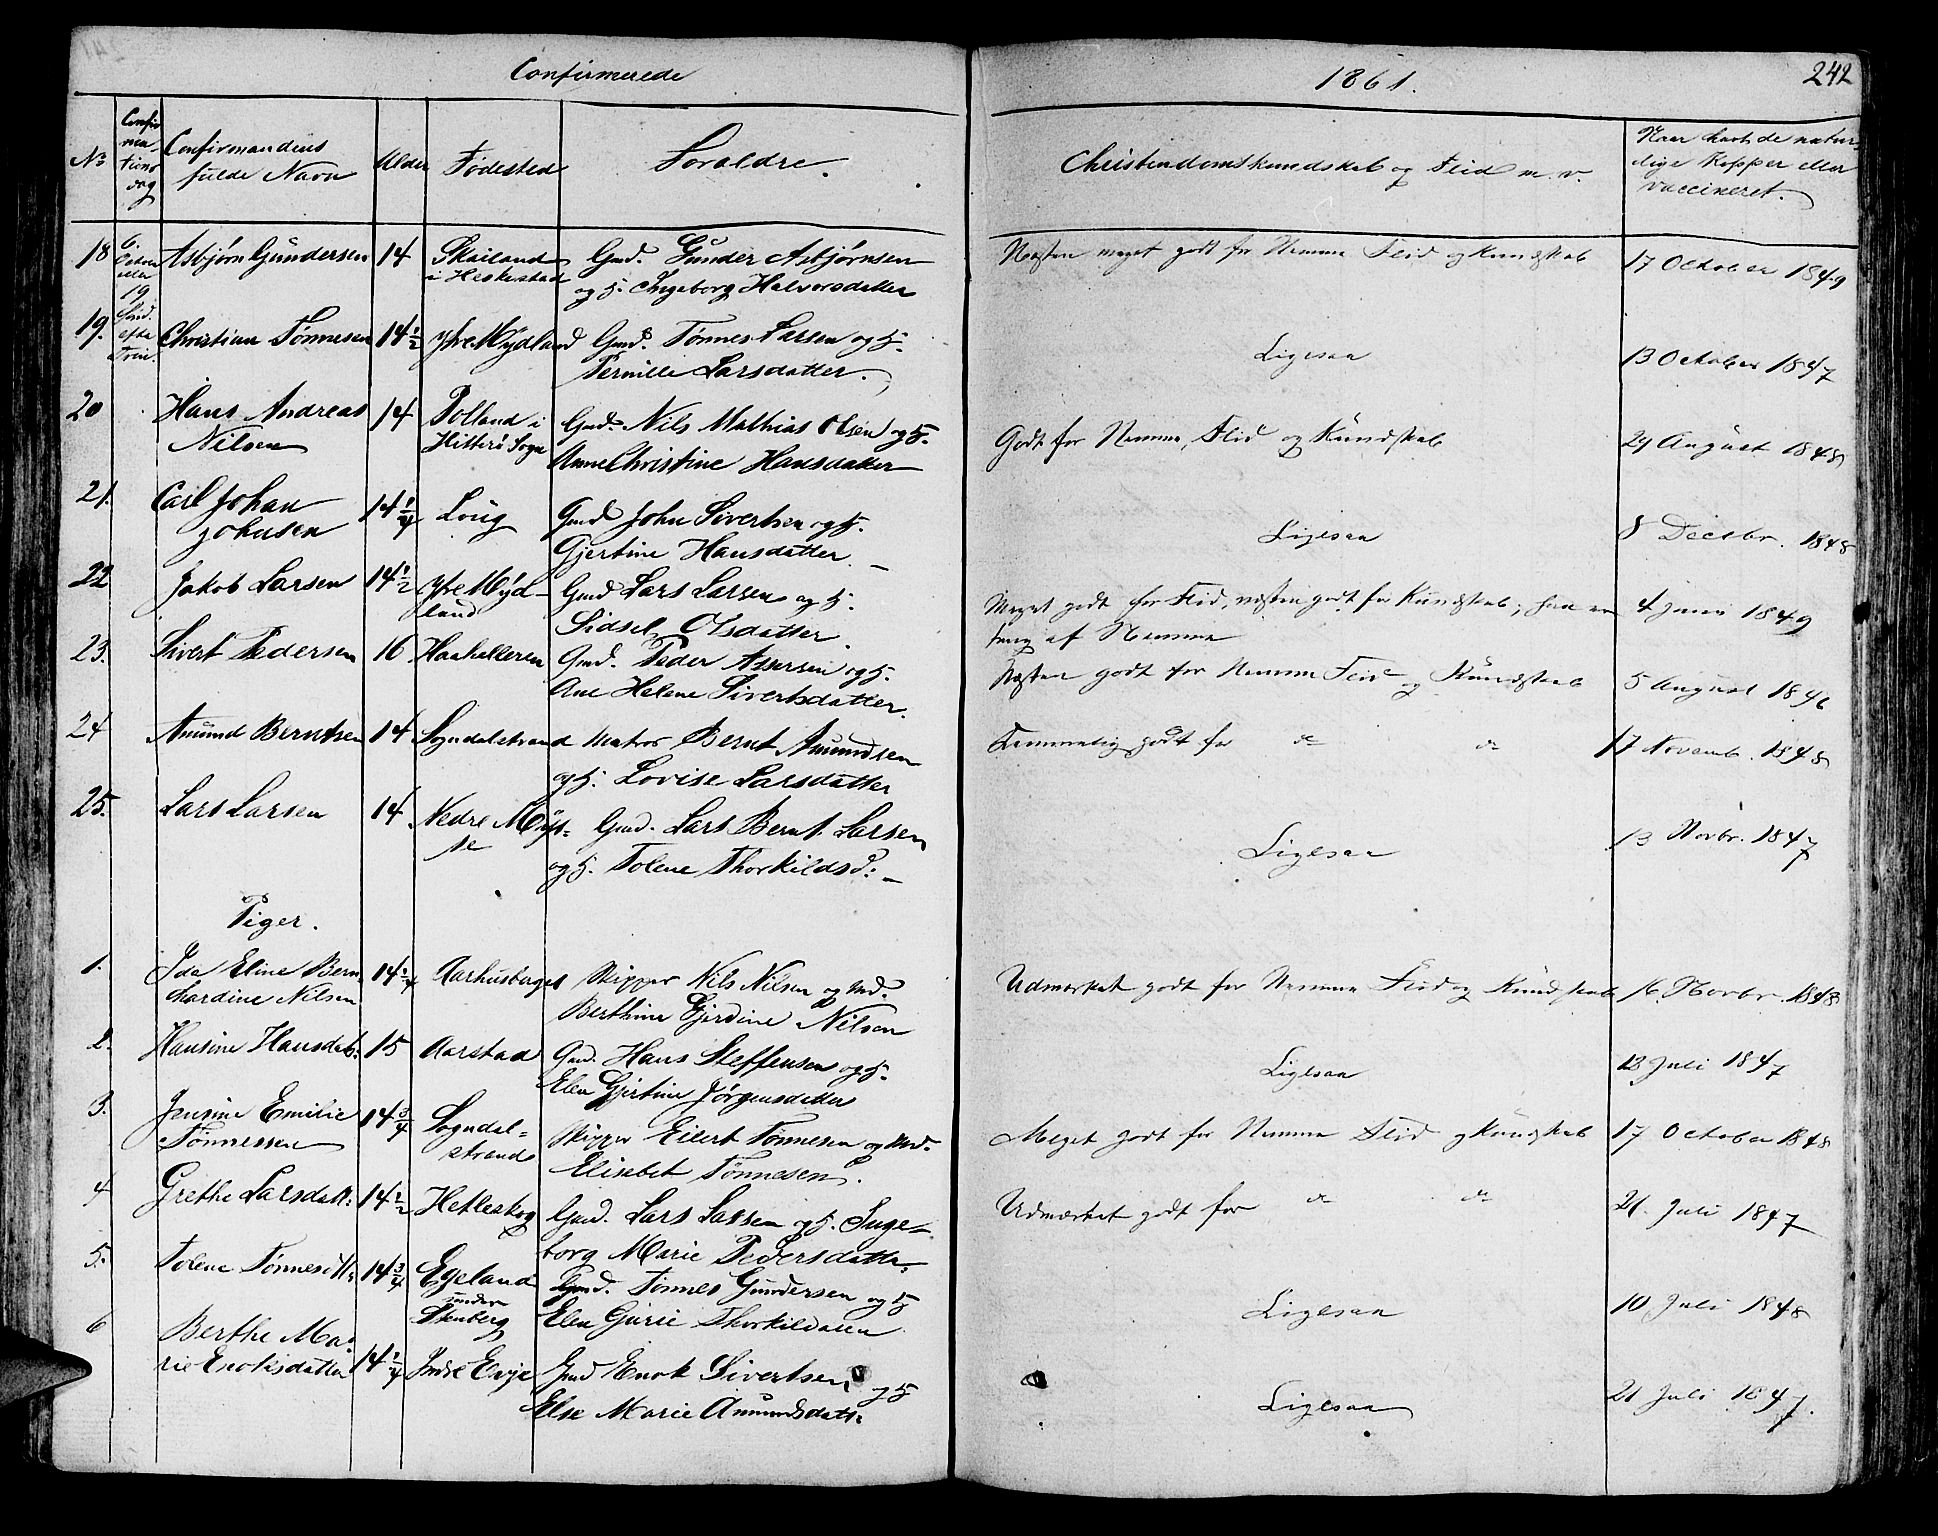 Confirmerede
1861.
242
No
Confirmations dag
Confirmandens fulde Navn
Alder
Fødested
Foraldre.
Christendomskundskab og Flid m. v.
Naar havt de naturlige Kopper eller vaccineret.
18 6. October 19 Sønd. efter Trin. Asbjørn Gundersen 14 Skailand i Heskestad Gmd. Gunder Asbjørnsen og H. Ingeborg Halvorsdatter Næsten meget godt for Nemme Flid og Kundskab 17 October 1849
19. Christian Tønnesen 14 1/2 Ytre Mydland Gmd. Tønnes Larsen og H. Pernille Larsdatter. Ligesaa 13 October 1847
20 Hans Andreas Nilsen 14 Polland i Hitterø Sogn Gmd. Nils Mathias Olsen og H. Anne Christine Hansdatter Godt for Nemme, Flid og Kundskab 29 August 1848
21. Carl Johan Johnsen 14 1/4 Loug Gmd John Sivertsen og H. Gjertine Hansdatter. Ligesaa 8 Decbr. 1848
22 Jakob Larsen 14 1/2 Ytre Mydland Gmd Lars Larsen og H. Sidsel Olsdatter. Meget godt for Flid, næsten godt for Kundskab, af Nemme 4 Juni 1849
23. Sivert Pedersen 16 Haahelleren Gmd. Peder Assersen og H. Ane Helene Sivertsdatter. Næsten godt for Nemme Flid og Kundskab 5 August 1846
24 Amund Berntsen 14 Sogndalstrand Matros Bernt Amundsen og H. Lovise Larsdatter Temmelig godt for do do 17 Novemb. 1848
25. Lars Larsen 14 Nedre Mysse Gmd. Lars Bernt Larsen og H. Tolene Thorkildsd: Ligesaa 13 Novbr. 1847
Piger.
1. Ida Eline Bernhardine Nilsen 14 1/4 Aarhusbaget Skipper Nils Nilsen og Md. Berthine Gjerdine Nilsen Udmærket godt for Nemme Flid og Kundskab 16. Novbr. 1848
2. Hansine Hansdat: 15 Aarstad Gmd. Hans Steffensen og H. Elen Gjertine Jørgensdatter Ligesaa 13 Juli 1847
3. Jensine Emilie Tønnessen 14 3/4 Sogndalstrand Skipper Eilert Tønnesen og Md. Elisebet Tønnesen. Meget godt for Nemme Flid og Kundskab 17 October 1848
4 Grethe Larsdatt: 14 1/2 Hetleskog Gmd. Lars Lassen og H. Ingeborg Marie Pedersdatter. Udmærket godt for do do 21. Juli 1847
5. Tolene Tønnesdtt: 14 3/4 Egeland under Stenberg Gmd. Tønnes Gundersen og H Elen Gurie Thorkildsen Ligesaa 10 Juli 1848
6 Berthe Marie Enoksdatter 14 1/4 Indre Evje Gmd Enok Sivertsen og H Else Marie Amundsdatt: Ligesaa 21 Juli 1847.